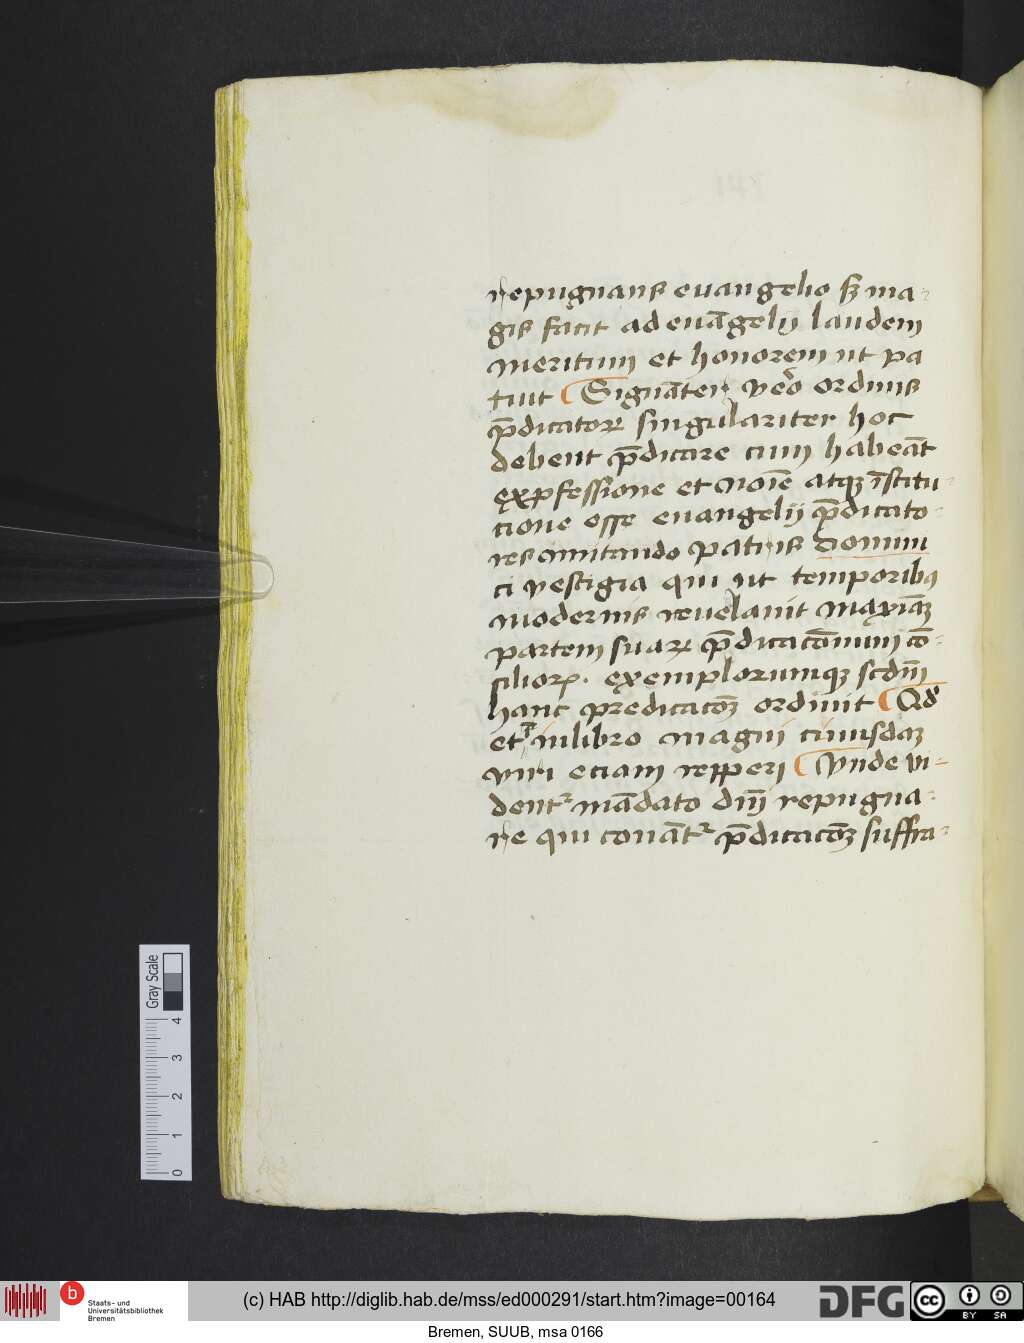 repugnans euangelio sꝫ ma-
gis facit ad euāgelij laudem
meritum et honorem ut pa
tiut Signāter vero ordinis
p̄dicatoꝝ singulariter hoc
debent p̄dicare cum habeāt
ex professione et noīe atqꝫ īstitu-
cione esse euangelij p̄dicato-
res imitando patris domini
ci vestigia qui ut temporibꝰ
modernis reuelauit maxiāꝫ
partem suaꝝ p̄dicac̄onum cō-
silioꝝ. exemplorumqꝫ scdm̄
hanc predicac̄oꝫ ordinit Qd̓
etr̃ in libro magni cuiusdaꝫ
viri eciam repperi Vnde vi-
dentr̃ mādato dn̄j repugna-
re qui conātr̃ p̄dicac̄oꝫ suffra-
Gray Scale
4 3 2 1 0
b Staats- und
Universitätsbibliothek
Bremen
(c) HAB http://diglib.hab.de/mss/ed000291/start.htm?image=00164
DFG
cc BY SA
Bremen, SUUB, msa 0166